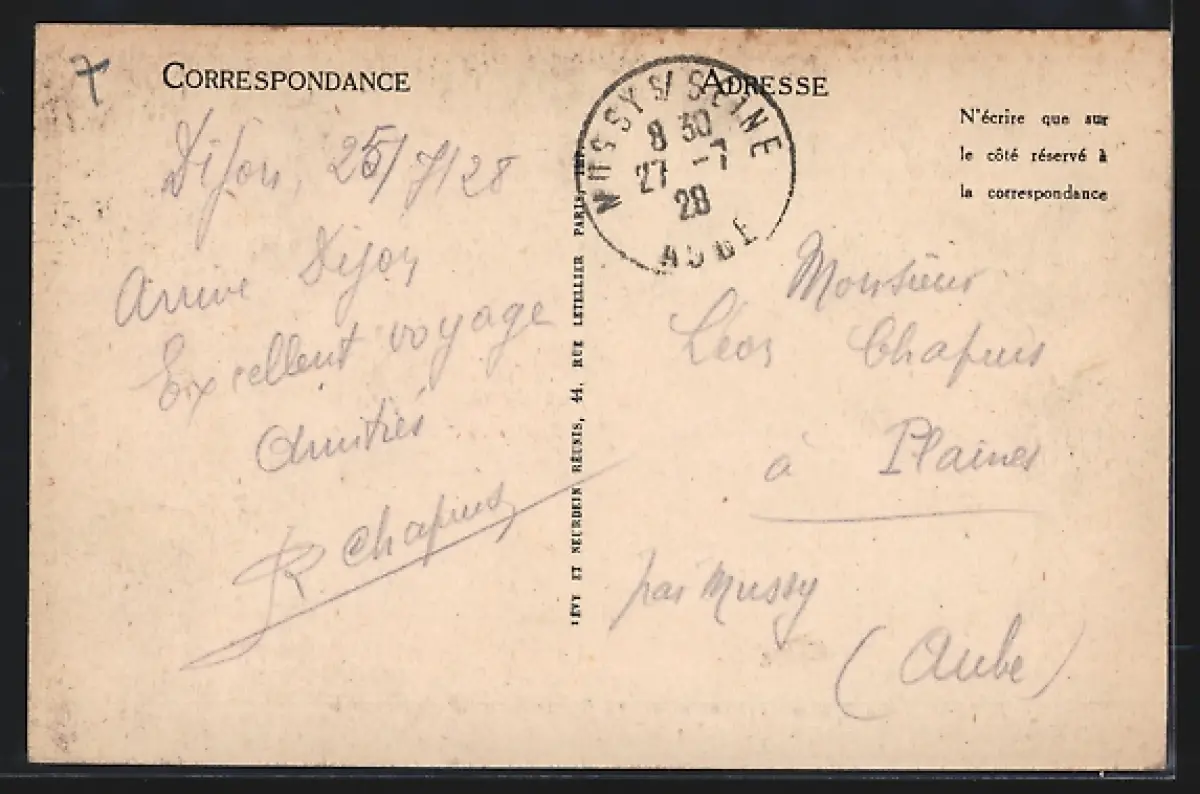 7
CORRESPONDANCE
Dijon, 25/7/28
Arrivé Dijon
Excellent voyage
Amitiés
R Chapuis
LÉVY ET NEURDEIN RÉUNIS, 44, RUE LETELLIER PARIS,
ADRESSE
N'écrire que sur
le côté réservé à
la correspondance
MUSSY S/ SEINE
8 30
27 -7
28
AUBE
Monsieur
Léon Chapuis
à Plaines
par Mussy
(Aube)